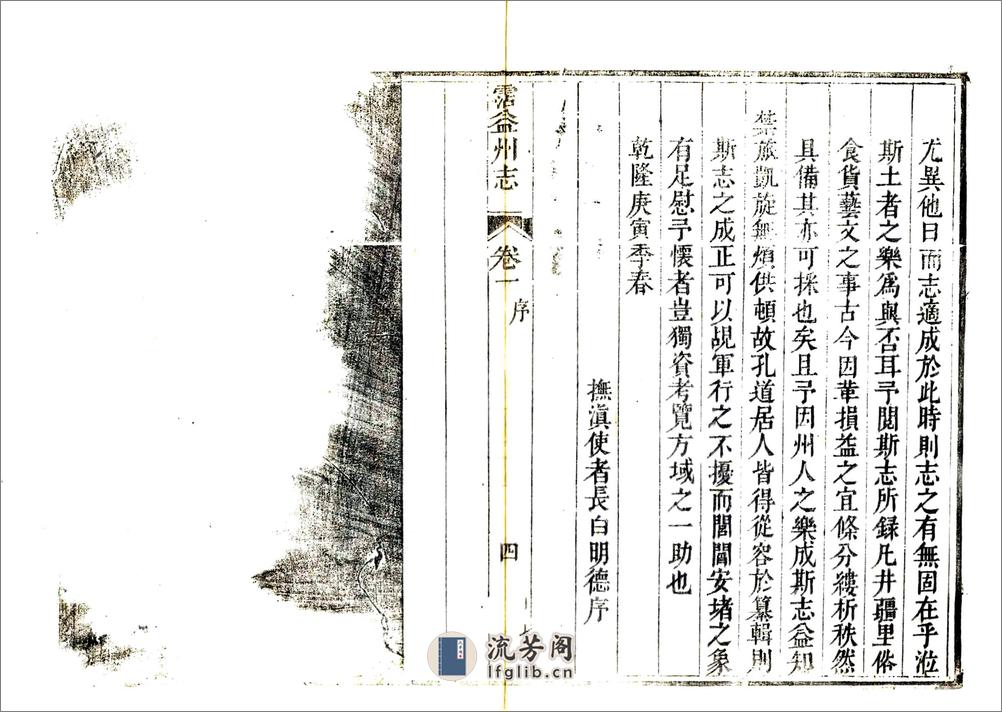 尤異他日而志適成於此時則志之有無固在乎涖
斯土者之樂爲與否耳予閱斯志所録凡井疆里俗
食貨藝文之事古今因革損益之宜條分縷析秩然
具備其亦可採也矣且予因州人之樂成斯志益知
禁旅凱旋無煩供頓故孔道居人皆得從容於纂輯則
斯志之成正可以覘軍行之不擾而閭閻安堵之象
有足慰予懷者豈獨資考覽方域之一助也
乾隆庚寅季春
撫滇使者長白明德序
霑益州志 卷一 序 四
流芳阁
lfglib.cn